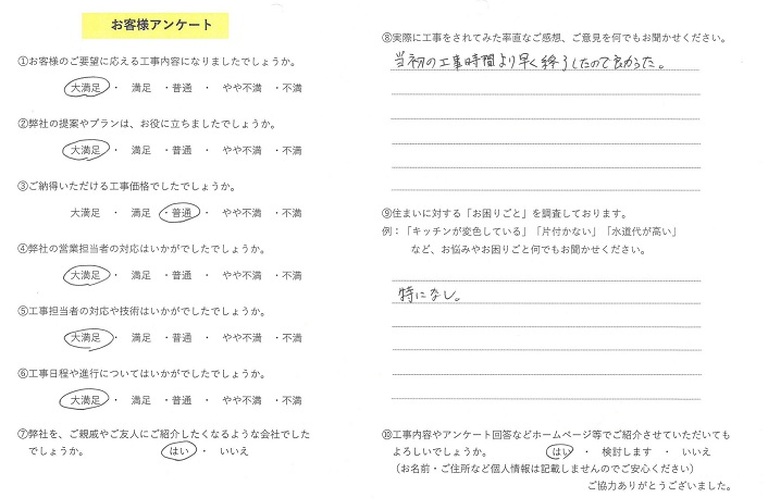 お客様アンケート
①お客様のご要望に応える工事内容になりましたでしょうか。
大満足 ・ 満足 ・普通 ・ やや不満 ・不満
②弊社の提案やプランは、お役に立ちましたでしょうか。
大満足 ・ 満足 ・普通 ・ やや不満 ・不満
③ご納得いただける工事価格でしたでしょうか。
大満足 ・ 満足 ・普通 ・ やや不満 ・不満
④弊社の営業担当者の対応はいかがでしたでしょうか。
大満足 ・ 満足 ・普通 ・ やや不満 ・不満
⑤工事担当者の対応や技術はいかがでしたでしょうか。
大満足 ・ 満足 ・普通 ・ やや不満 ・不満
⑥工事日程や進行についてはいかがでしたでしょうか。
大満足 ・ 満足 ・普通 ・ やや不満 ・不満
⑦弊社を、ご親戚やご友人にご紹介したくなるような会社でした
でしょうか。 はい ・ いいえ
⑧実際に工事をされてみた率直なご感想、ご意見を何でもお聞かせください。
当初の工事時間より早く終了したので良かった。
⑨住まいに対する「お困りごと」を調査しております。
例：「キッチンが変色している」「片付かない」「水道代が高い」
など、お悩みやお困りごと何でもお聞かせください。
特になし。
⑩工事内容やアンケート回答などホームページ等でご紹介させていただいても
よろしいでしょうか。 はい ・ 検討します ・ いいえ
（お名前・ご住所など個人情報は記載しませんのでご安心ください）
ご協力ありがとうございました。